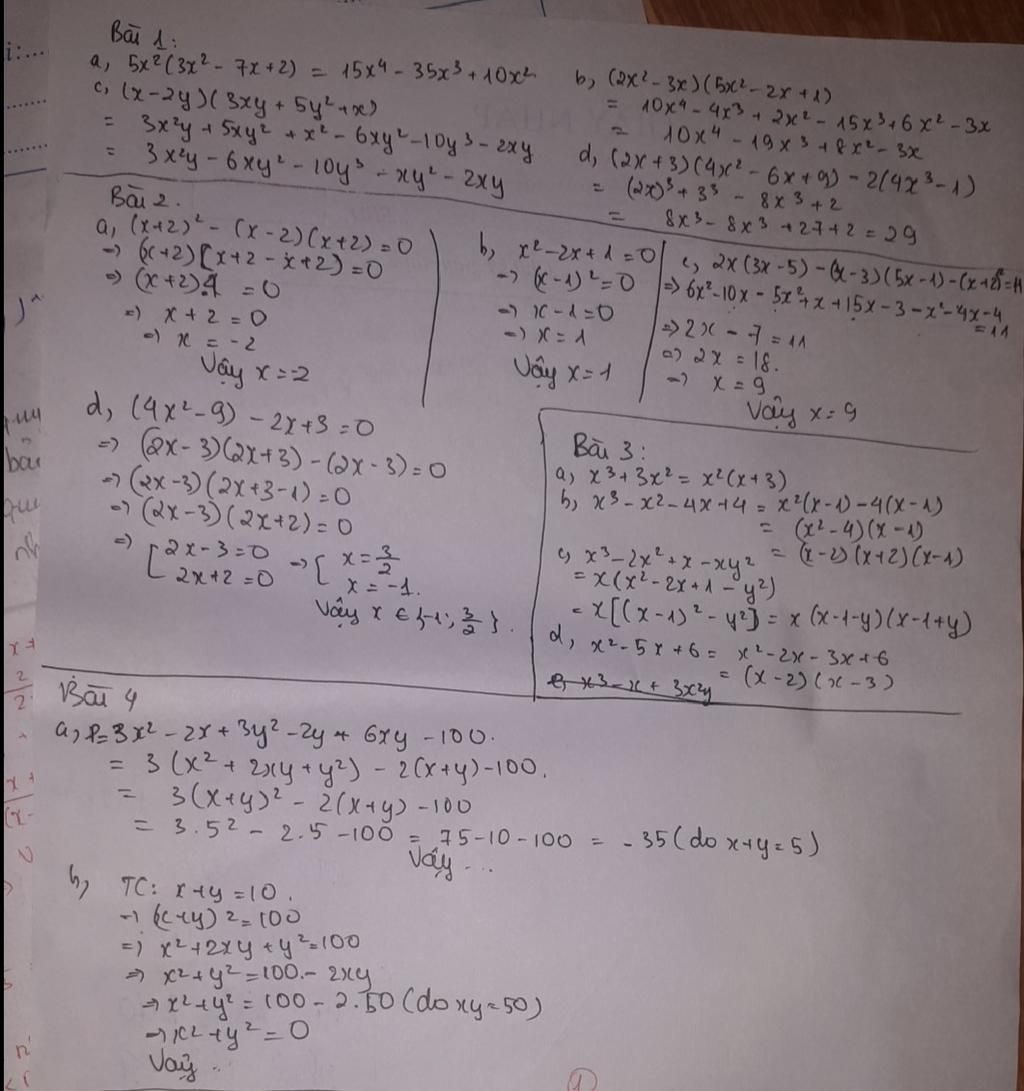 Bài 1:
a, 5x²(3x² - 7x + 2) = 15x⁴ - 35x³ + 10x²
b, (2x² - 3x)(5x² - 2x + 1)
= 10x⁴ - 4x³ + 2x² - 15x³ + 6x² - 3x
= 10x⁴ - 19x³ + 8x² - 3x
c, (x - 2y)(3xy + 5y² + x)
= 3x²y + 5xy² + x² - 6xy² - 10y³ - 2xy
= 3x²y - 6xy² - 10y³ - xy² - 2xy
d, (2x + 3)(4x² - 6x + 9) - 2(4x³ - 1)
= (2x)³ + 3³ - 8x³ + 2
= 8x³ - 8x³ + 27 + 2 = 29
Bài 2.
a, (x+2)² - (x-2)(x+2) = 0
⇒ (x+2)[x+2 - x+2) = 0
⇒ (x+2).4 = 0
⇒ x + 2 = 0
⇒ x = -2
Vậy x = -2
b, x² - 2x + 1 = 0
⇒ (x-1)² = 0
⇒ x - 1 = 0
⇒ x = 1
Vậy x = 1
c, 2x(3x-5) - (x-3)(5x-1) - (x+2)² = 11
⇒ 6x² - 10x - 5x² + x + 15x - 3 - x² - 4x - 4
= 11
⇒ 2x - 7 = 11
⇒ 2x = 18.
⇒ x = 9
Vậy x = 9
d, (4x² - 9) - 2x + 3 = 0
⇒ (2x - 3)(2x + 3) - (2x - 3) = 0
⇒ (2x - 3)(2x + 3 - 1) = 0
⇒ (2x - 3)(2x + 2) = 0
⇒ [ 2x - 3 = 0 ⇒ [ x = 3/2
2x + 2 = 0 x = -1.
Vậy x ∈ {-1; 3/2}.
Bài 3:
a, x³ + 3x² = x²(x + 3)
b, x³ - x² - 4x + 4 = x²(x-1) - 4(x-1)
= (x² - 4)(x - 1)
= (x-2)(x+2)(x-1)
c, x³ - 2x² + x - xy²
= x(x² - 2x + 1 - y²)
= x[(x-1)² - y²] = x(x-1-y)(x-1+y)
d, x² - 5x + 6 = x² - 2x - 3x + 6
= (x - 2)(x - 3)
e, x³ - x + 3x²y
Bài 4
a, P = 3x² - 2x + 3y² - 2y + 6xy - 100.
= 3(x² + 2xy + y²) - 2(x+y) - 100.
= 3(x+y)² - 2(x+y) - 100
= 3.5² - 2.5 - 100 = 75 - 10 - 100 = -35 (do x+y = 5)
Vậy ...
b, TC: x + y = 10.
⇒ (x+y)2 = 100
⇒ x² + 2xy + y² = 100
⇒ x² + y² = 100 - 2xy
⇒ x² + y² = 100 - 2.50 (do xy = 50)
⇒ x² + y² = 0
Vậy ..